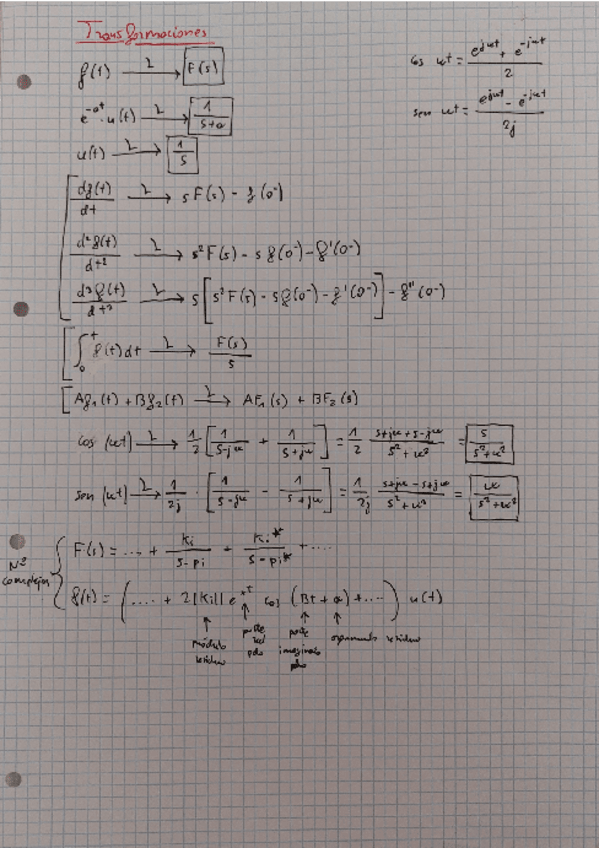 Transformaciones
f(t) —L→ F(s)
e^-at · u(t) —L→ 1/(s+a)
u(t) —L→ 1/s
cos wt = (e^jwt + e^-jwt)/2
sen wt = (e^jwt - e^-jwt)/2j
df(t)/dt —L→ sF(s) - f(0-)
d²f(t)/dt² —L→ s²F(s) - sf(0-) - f'(0-)
d³f(t)/dt³ —L→ s[s²F(s) - sf(0-) - f'(0-)] - f''(0-)
∫₀ᵗ f(t)dt —L→ F(s)/s
Af₁(t) + Bf₂(t) —L→ AF₁(s) + BF₂(s)
cos(wt) —L→ 1/2 [1/(s-jw) + 1/(s+jw)] = 1/2 (s+jw+s-jw)/(s²+w²) = s/(s²+w²)
sen(wt) —L→ 1/2j · [1/(s-jw) - 1/(s+jw)] = 1/2j (s+jw-s+jw)/(s²+w²) = w/(s²+w²)
Nº complejos
F(s) = ... + Ki/(s-pi) + Ki*/(s-pi*) + ....
f(t) = (.... + 2|Ki| e^αt cos (βt + α) + ....) u(t)
módulo residuo
parte real polo
parte imaginaria polo
argumento residuo